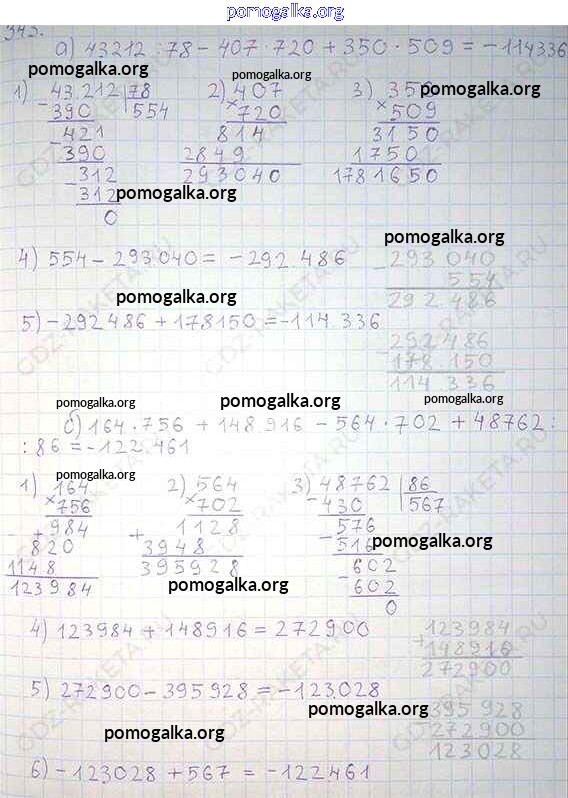 pomogalka.org
343.
а) 43212 : 78 − 407 · 720 + 350 · 509 = −114336
pomogalka.org pomogalka.org pomogalka.org
1) 43212 |78 2) 407 3) 350
− 390 554 × 720 × 509
421 814 3150
− 390 2849 1750
312 293040 1781650
− 312 pomogalka.org
0
pomogalka.org
4) 554 − 293040 = −292486 − 293040
554
pomogalka.org 292486
5) −292486 + 178150 = −114336
− 292486
178150
114336
pomogalka.org pomogalka.org pomogalka.org
б) 164 · 756 + 148916 − 564 · 702 + 48762 :
: 86 = −122461
pomogalka.org
1) 164 2) 564 3) 48762 |86
× 756 × 702 − 430 567
+ 984 + 1128 576
820 3948 − 516 pomogalka.org
1148 395928 602
123984 pomogalka.org − 602
0
4) 123984 + 148916 = 272900 + 123984
148916
272900
5) 272900 − 395928 = −123028
pomogalka.org 395928
pomogalka.org 272900
123028
6) −123028 + 567 = −122461
pomogalka.org
GDZ-RAKETA.RU